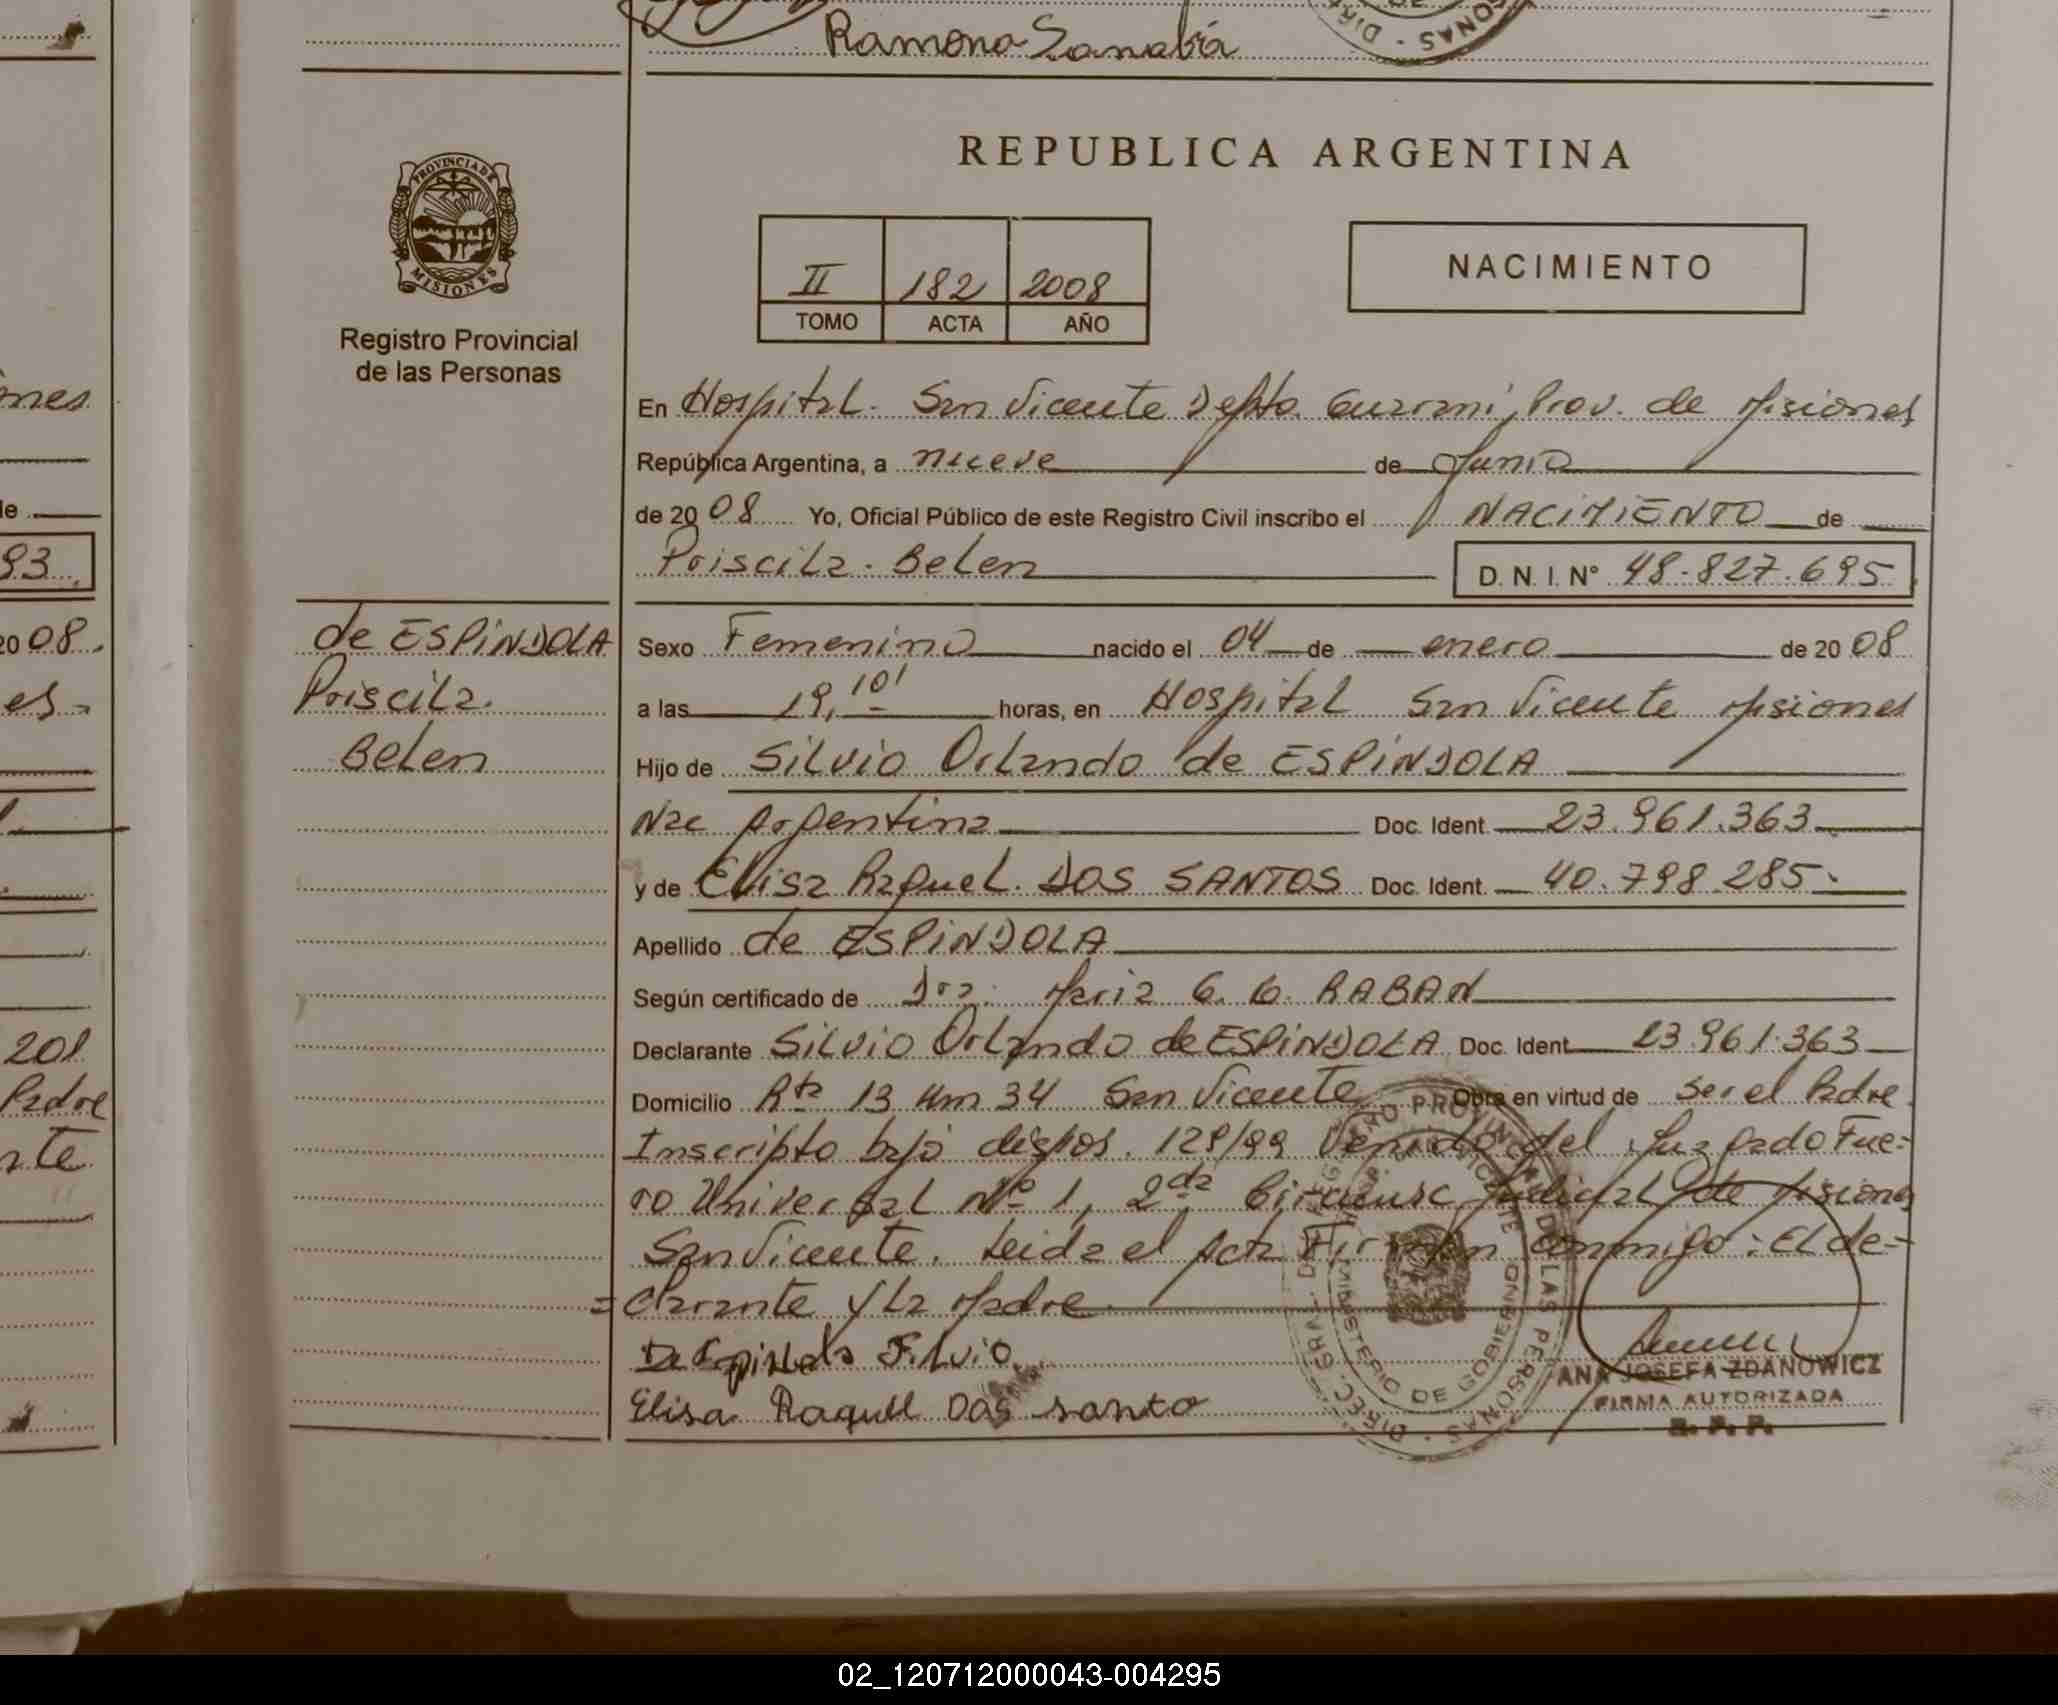 Ramona Sanabria
REPUBLICA ARGENTINA
PROVINCIA DE
MISIONES
Registro Provincial
de las Personas
II 182 2008
TOMO ACTA AÑO
NACIMIENTO
En Hospital. San Vicente Depto. Guarani, Prov. de Misiones
República Argentina, a nueve de Junio
de 2008 Yo, Oficial Público de este Registro Civil inscribo el NACIMIENTO de
Priscila. Belen D. N. I. Nº 48.827.695
de ESPINDOLA
Priscila.
Belen
Sexo Femenino nacido el 04 de enero de 2008
a las 19,10' horas, en Hospital San Vicente Misiones
Hijo de Silvio Orlando de ESPINDOLA
Nac Argentina Doc. Ident. 23.961.363
y de Elisa Raquel. DOS SANTOS Doc. Ident. 40.798.285.
Apellido de ESPINDOLA
Según certificado de Dra. Maria G. G. RABAN
Declarante Silvio Orlando de ESPINDOLA Doc. Ident. 23.961.363
Domicilio Rta 13 Km 34 San Vicente Obra en virtud de ser el Padre.
Inscripto bajo dispos. 128/99 Venido del Juzgado Fue=
ro Universal Nº 1, 2da Circunsc Judicial de Misiones
San Vicente. Leida el Acta Firman conmigo: El de=
=clarante y La Madre.
De Espindola Silvio
Elisa Raquel Dos santo
ANA JOSEFA ZDANOWICZ
FIRMA AUTORIZADA
R. P. P.
MINISTERIO DE GOBIERNO
02_120712000043-004295